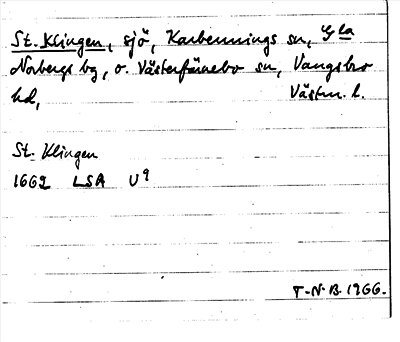 St. Klingen, sjö, Karbennings sn, G:la
Norbergs bg, o. Västerfärnebo sn, Vangsbro
hd, Västm. l.
St. Klingen
1662 LSA U9
T-N. B. 1966.